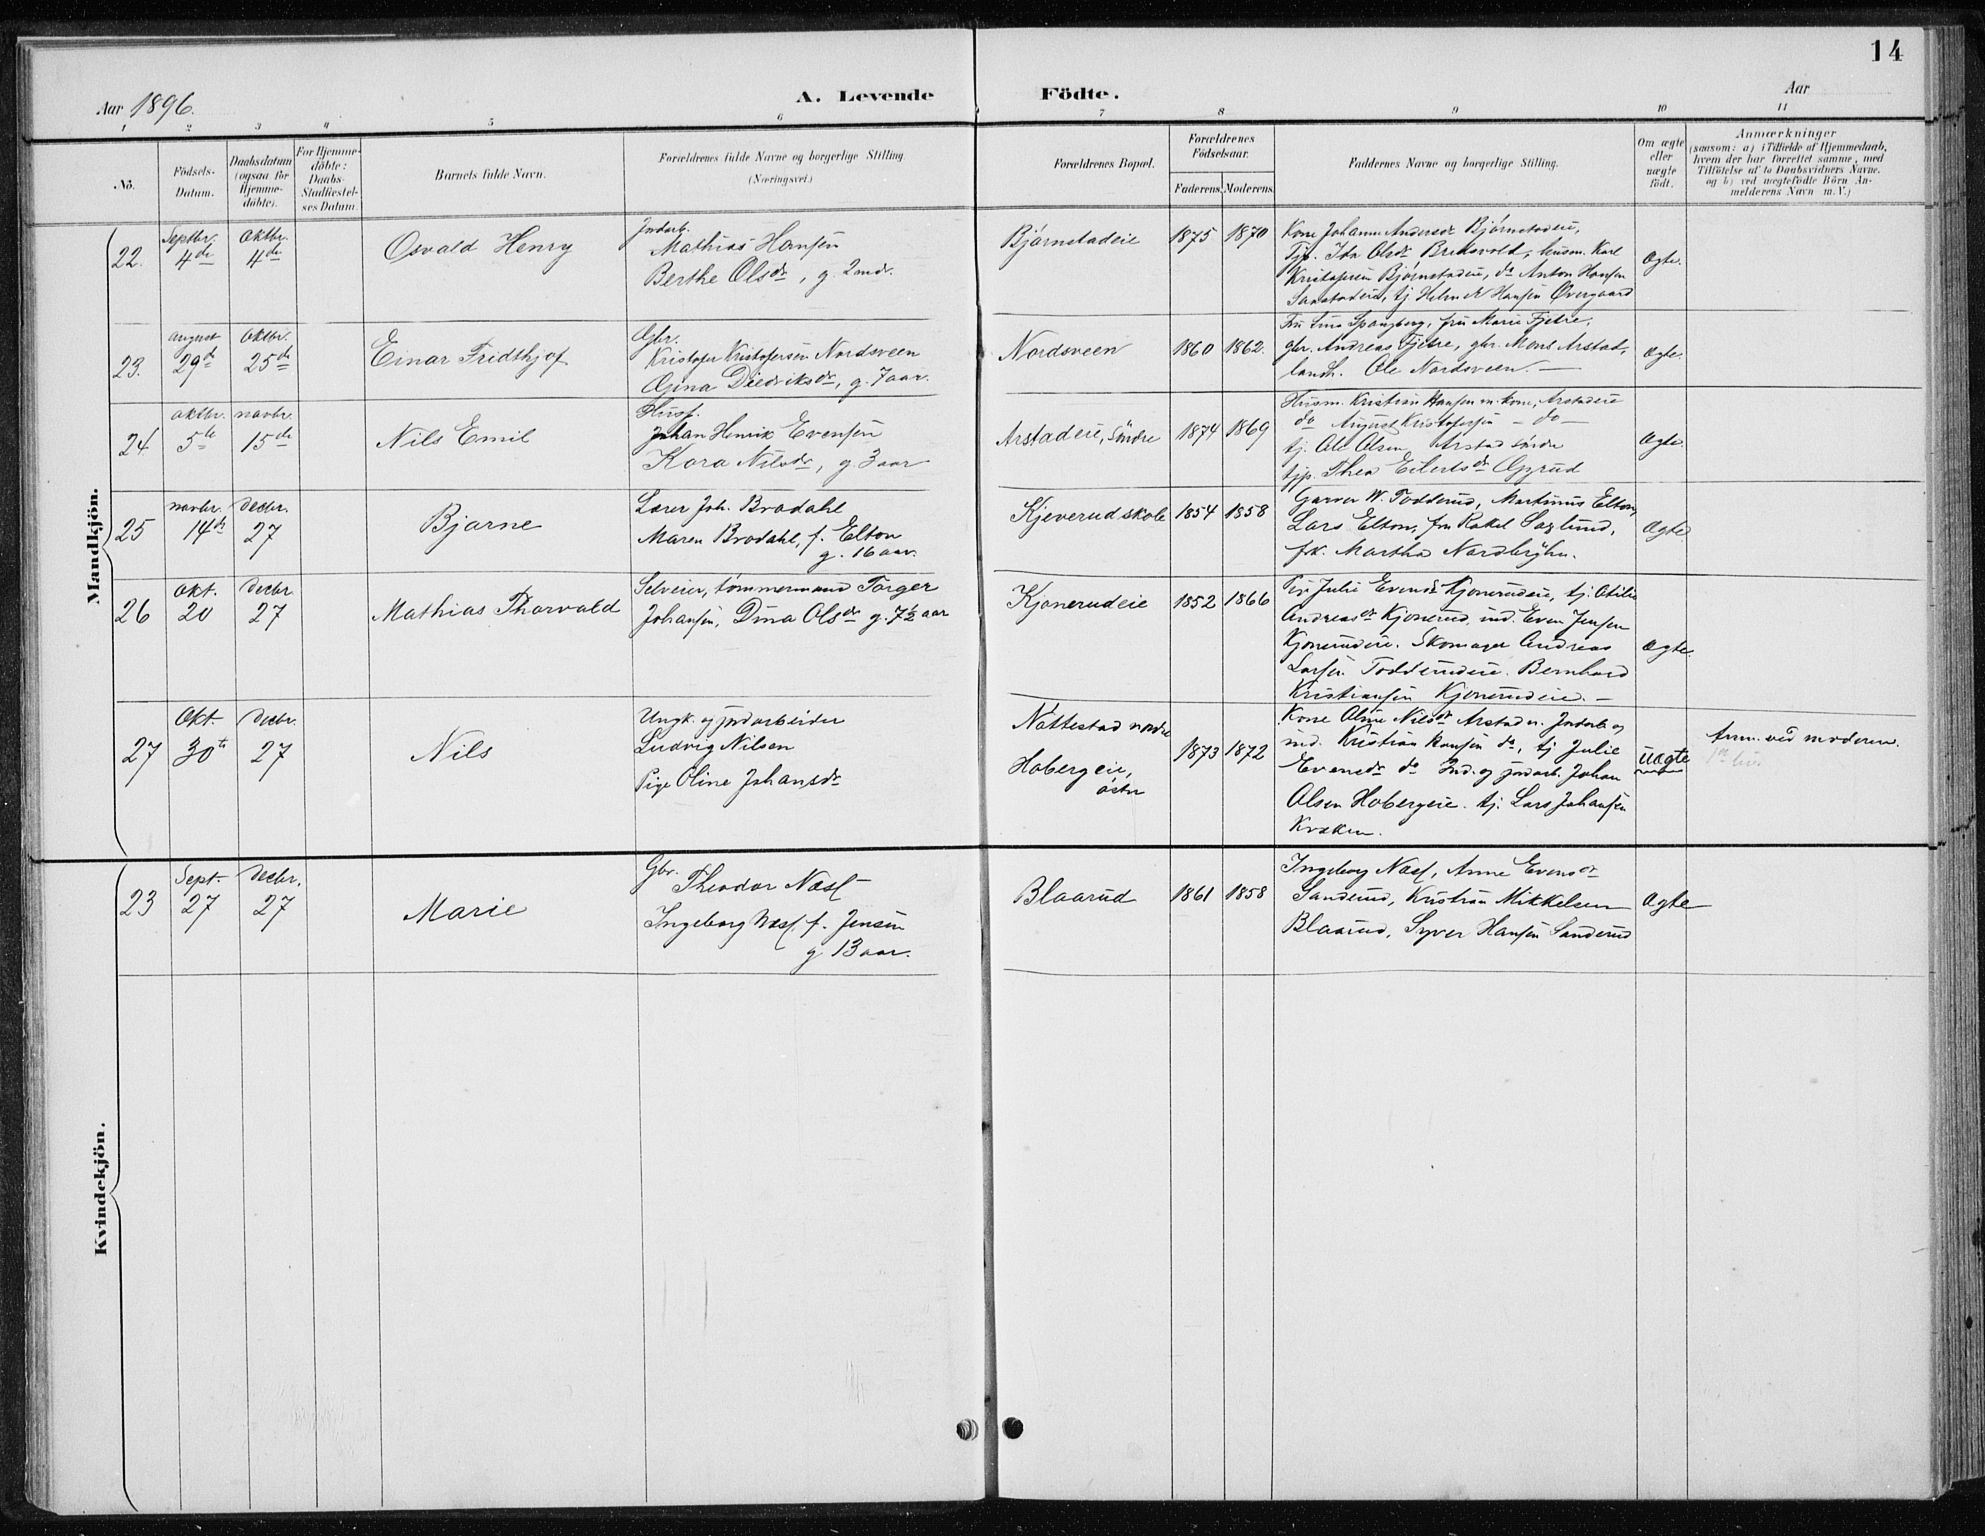 14
Aar 1896.
A. Levende Födte.
Aar
1 2 3 4 5 6 7 8 9 10 11
No.
Födsels-Datum.
Daabsdatum (ogsaa for Hjemme-döbte).
For Hjemme-döbte: Daabs-Stadfæstel-ses Datum.
Barnets fulde Navn.
Forældrenes fulde Navne og borgerlige Stilling. (Næringsvei.)
Forældrenes Bopæl.
Forældrenes Födselsaar.
Faderens. Moderens.
Faddernes Navne og borgerlige Stilling.
Om ægte eller uægte födt.
Anmærkninger
(saasom: a) i Tilfælde af Hjemmedaab,
hvem der har forrettet samme, med
Tilföielse af to Daabsvidners Navne.
og b) ved uægtefödte Börn An-
melderens Navn m. V.)
Mandkjön.
22.
Septbr. 4de
Oktbr. 4de
Osvald Henry
Jordarb.
Mathias Hansen
Berthe Olsdr, g. 2 mdr.
Bjørnstadeie
1875
1870
Kone Johanne Andersdr Bjørnstadeie,
Tjp. Ida Olsdr Breksvold, husm. Karl
Kristofersen Bjørnstadeie, do Anton Hansen
tj. Hansen Øvergaard
Ægte.
23.
august 29de
Oktbr. 25de
Einar Fridthjof
Gbr.
Kristofer Kristofersen Nordsveen
Agina Diedriksdr, g. 7 aar.
Nordsveen
1860
1862.
Fru Lina Spangberg, fru Marie Fjetre,
gbr. Andreas Fjetre, gbr. Mons Arstad,
landh. Ole Nordsveen. —
Ægte.
24
oktbr. 5te
novbr. 15de
Nils Emil
Husf.
Johan Henrik Evensen
Kara Nilsdr, g. 3 aar
Arstadeie, Söndre
1874
1869
Husm. Kristian Hansen m. kone, Arstadeie
do August Kristofersen — do —
tj. Ole Olsen Arstad söndre
tjp. Thea Eilertsdr Opsrud
Ægte.
25
novbr. 14de
Decbr. 27
Bjarne
Lærer Joh. Brodahl
Maren Brodahl, f. Elton
g. 16 aar.
Kjeverud skole
1854
1858
Garver W. Todderud, Martinus Elton,
Lars Elton, fru Rakel Saglund,
frk. Martha Nordberghn.
Ægte
26
Okt. 20
Decbr. 27
Mathias Thorvald
Selveier, tømmermand Torger
Johansen, Dina Olsdr g. 7½ aar
Kjonerudeie
1852
1866
Pige Julie Evensdr Kjonerudeie, tj. Otilie
Andreasdr Kjonerud, ind. Even Jensen
Kjonerudeie. Skomager Andreas
Larsen Todderudeie. Bernhard
Kristiansen Kjonerudeie. —
Ægte.
27
Okt. 30te
Decbr. 27
Nils
Ungk. og jordarbeider
Ludvig Nilsen
Pige Oline Johansdr
Nøttestad nordre
Hobergeie,
östre
1873
1872
Kone Oline Nilsdr Arstad n. Jordarb og
ind. Kristian Hansen do, tj Julie
Evensdr do Ind. og jordarb. Johan
Olsen Hobergeie. tj. Lars Johansen
Kræken.
Uægte
Anm. ved moderen.
Kvindekjön.
23
Sept. 27
Decbr. 27
Marie
Gbr. Theodor Næss
Ingeborg Næss, f. Jensen
g. 13 aar.
Blaarud
1861
1858
Ingeborg Næss, Anne Evensdr
Sanderud, Kristian Mikkelsen
Blaarud, Syver Hansen Sanderud
Ægte